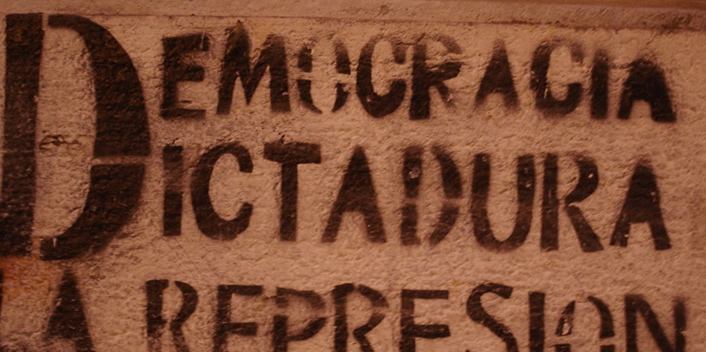 DEMOCRACIA
DICTADURA
LA REPRESION